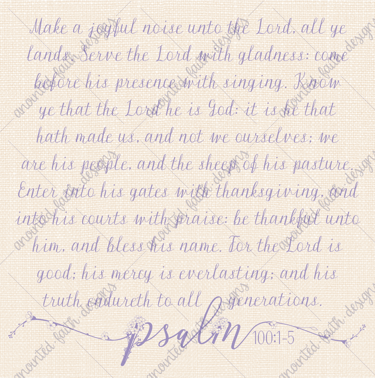 Make a joyful noise unto the Lord, all ye
lands. Serve the Lord with gladness: come
before his presence with singing. Know
ye that the Lord he is God: it is he that
hath made us, and not we ourselves; we
are his people, and the sheep of his pasture.
Enter into his gates with thanksgiving, and
into his courts with praise: be thankful unto
him, and bless his name. For the Lord is
good; his mercy is everlasting; and his
truth endureth to all generations.
psalm 100:1-5
anointed faith designs